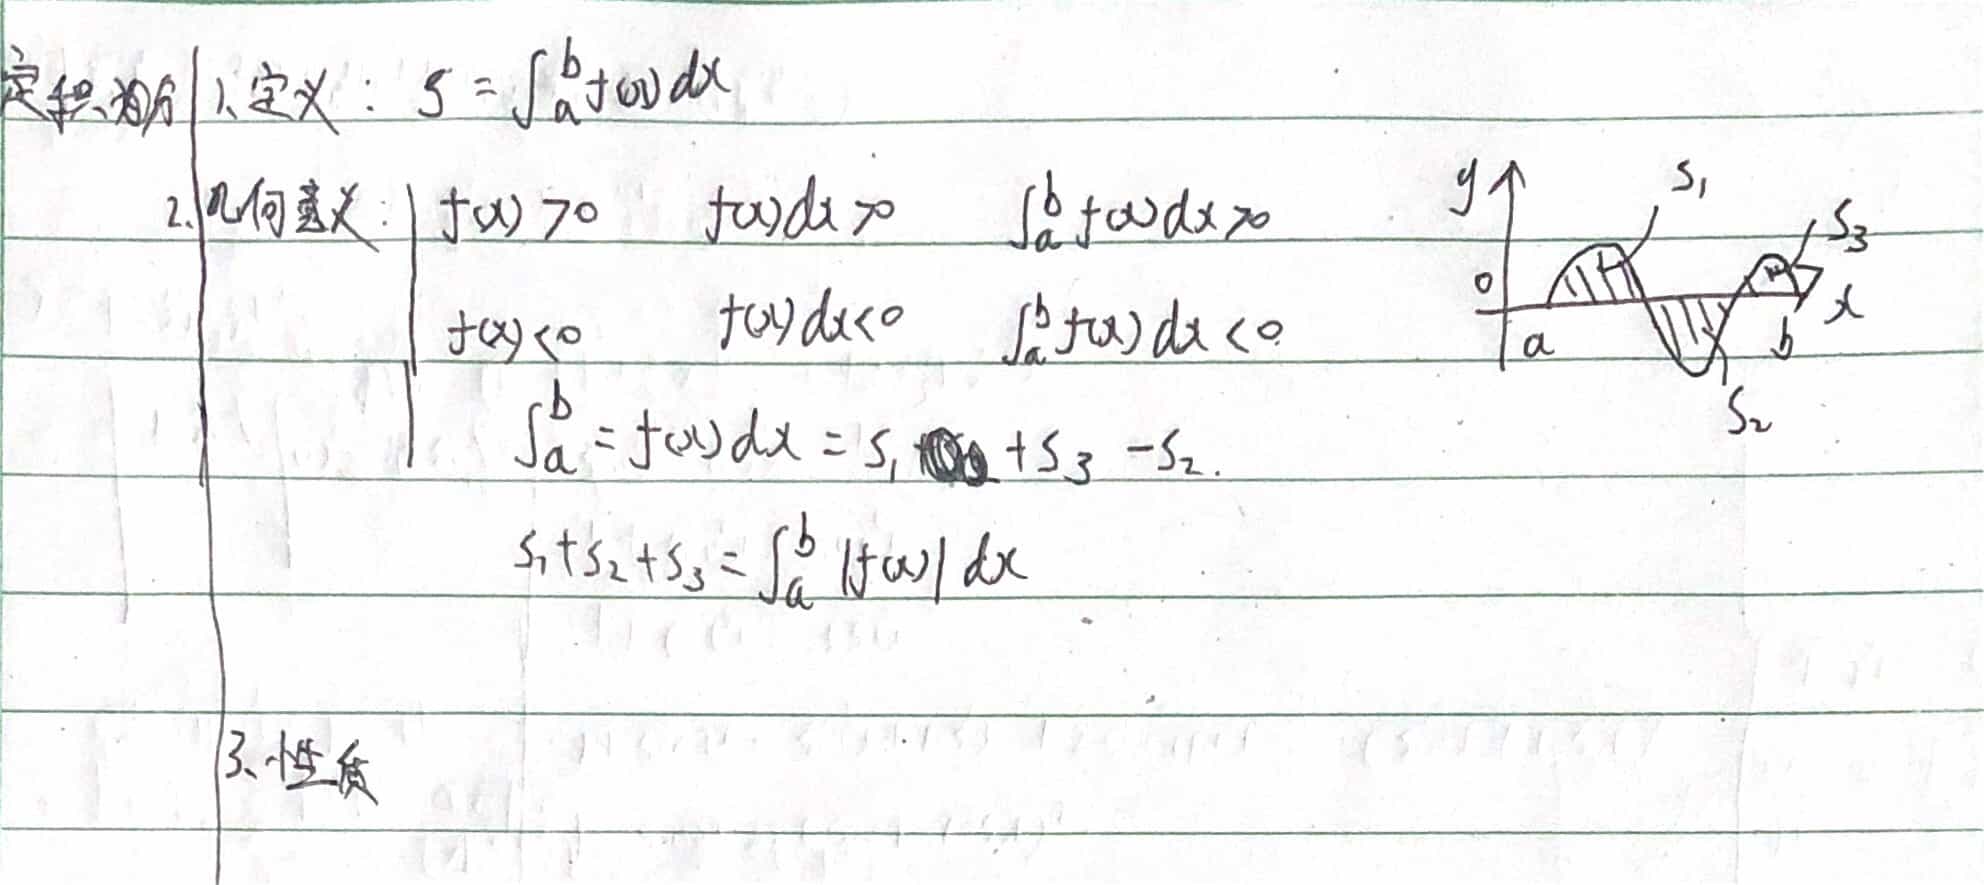 定积分 1、定义: S = ∫ₐᵇ f(x) dx
2. 几何意义: f(x) >0 f(x)dx >0 ∫ₐᵇ f(x)dx >0
f(x) <0 f(x)dx <0 ∫ₐᵇ f(x)dx <0
∫ₐᵇ = f(x)dx = S₁ + S₃ - S₂.
S₁ + S₂ + S₃ = ∫ₐᵇ |f(x)| dx
3、性质
y S₁
S₃
0 x
a b
S₂